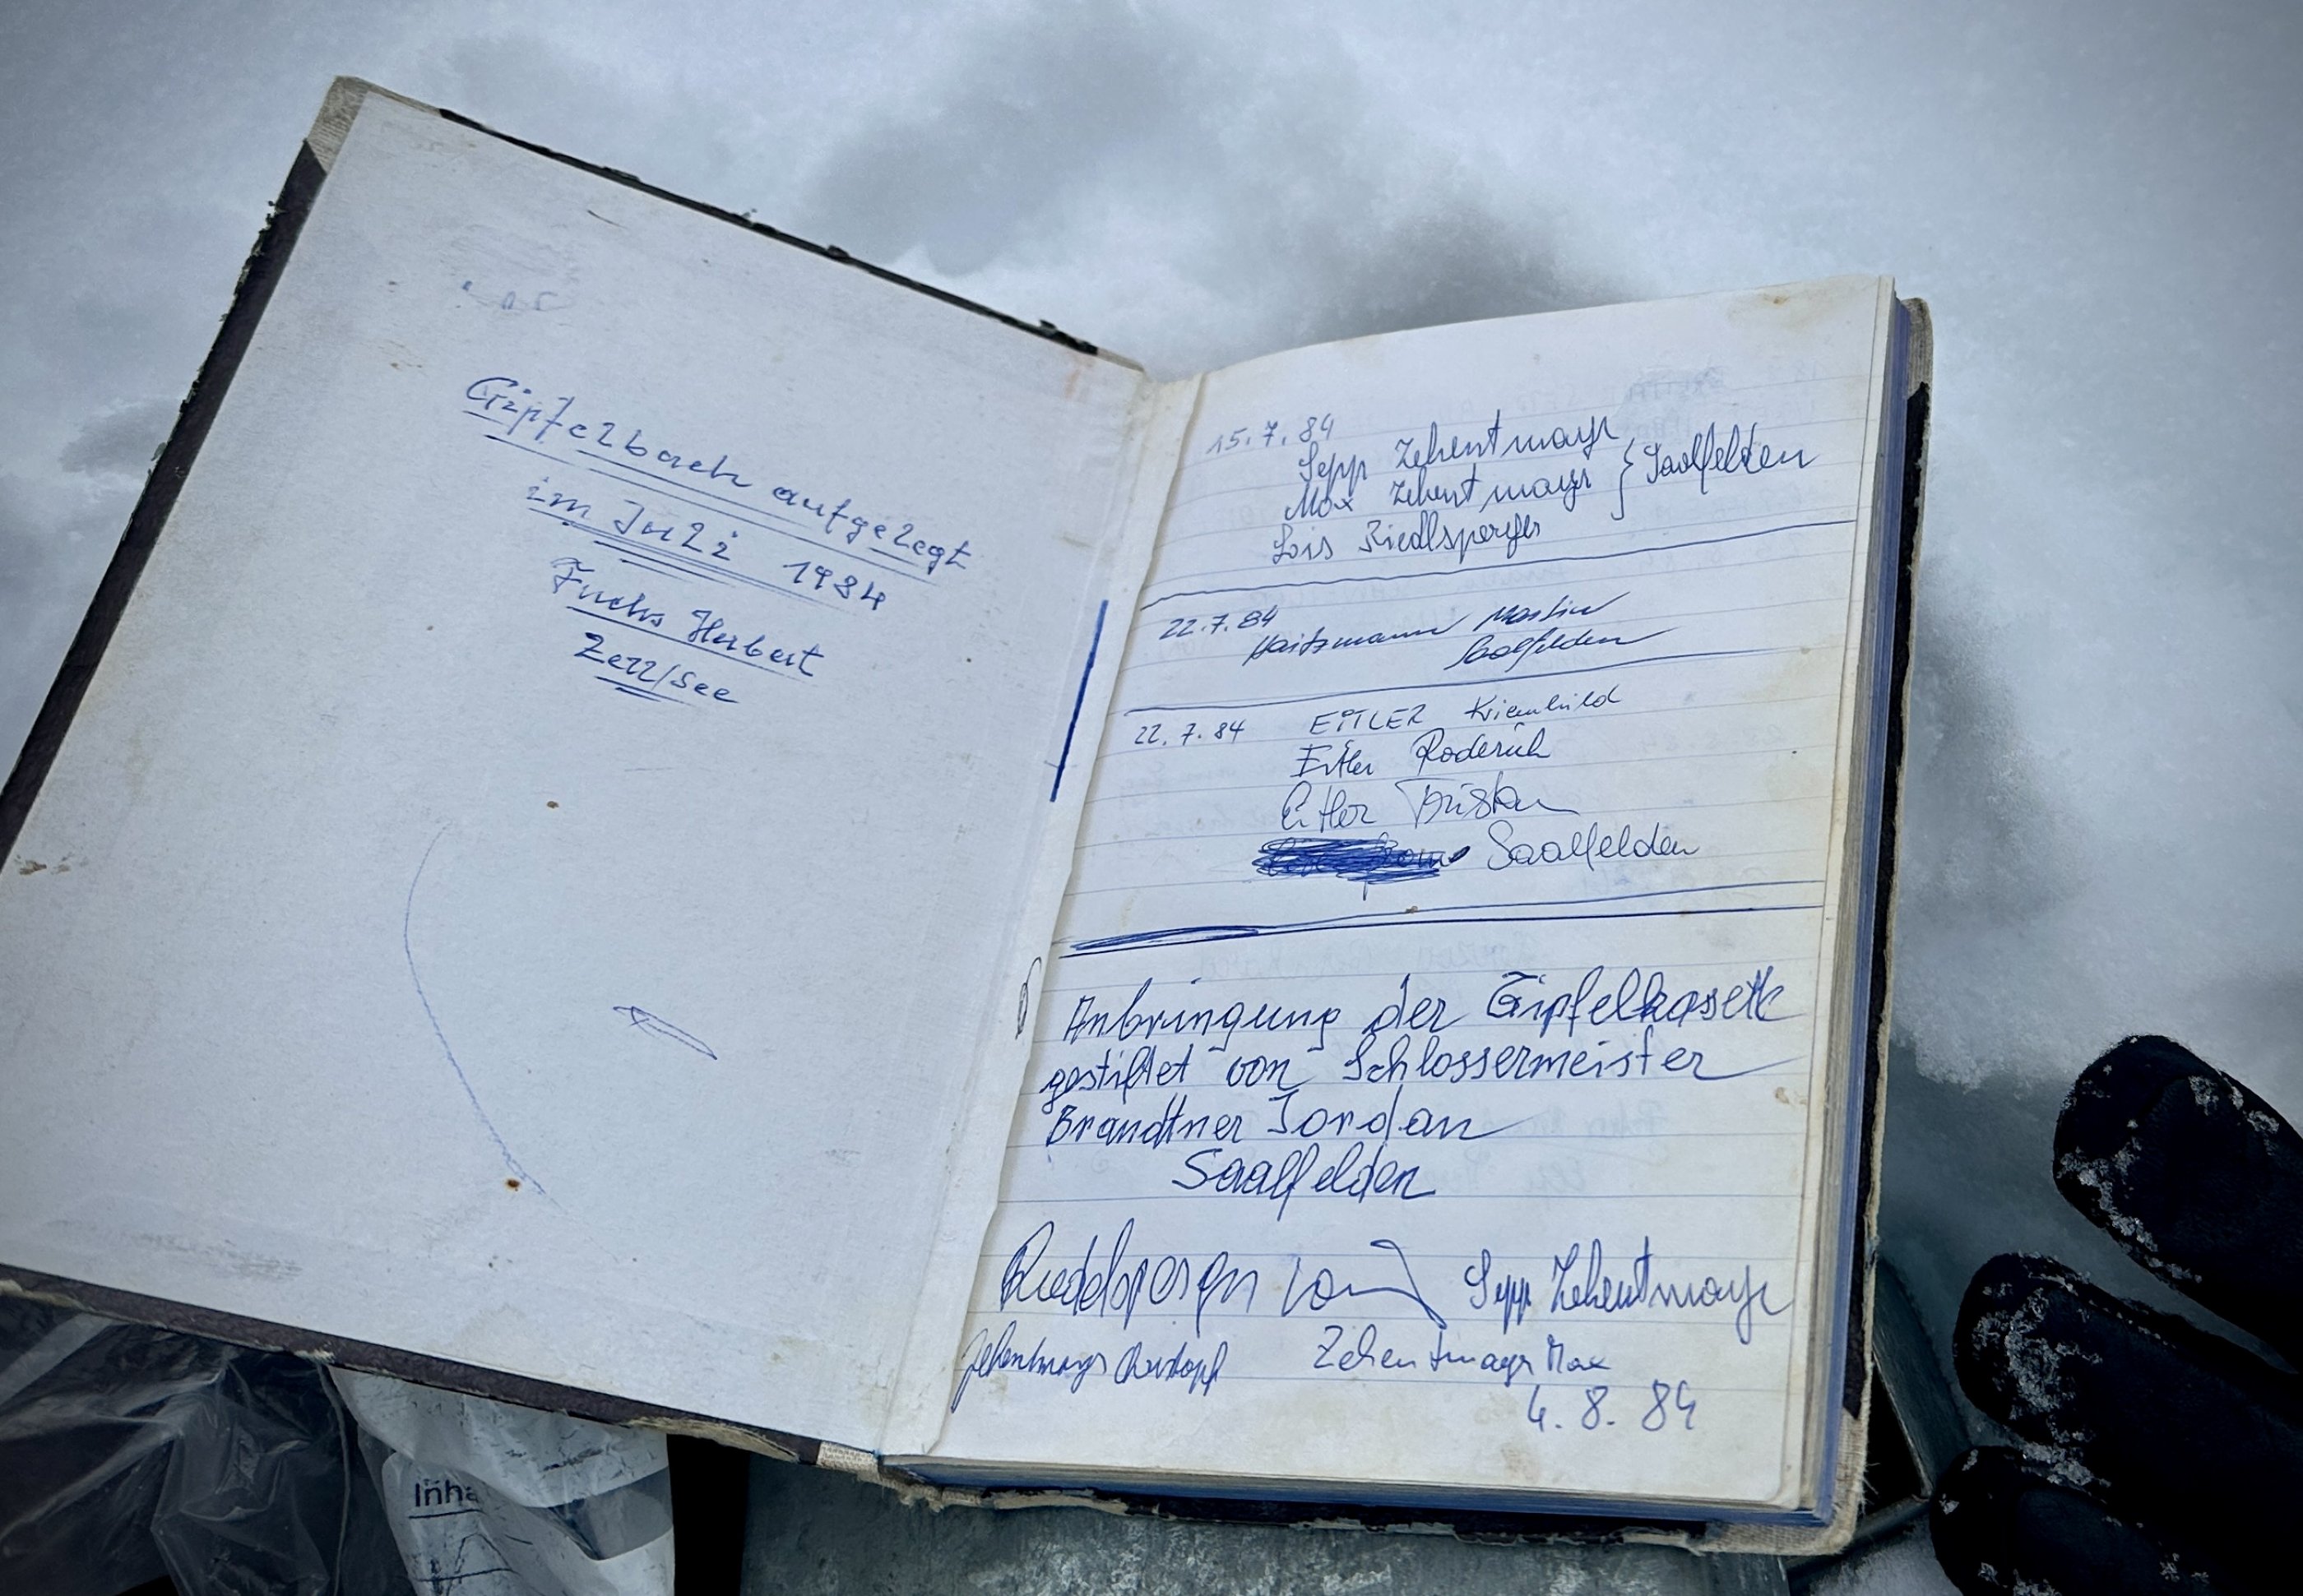 Gipfelbuch aufgelegt
im Juli 1984
Fuchs Herbert
Zell/See
15.7.84
Sepp Zehentmayr
Max Zehentmayr } Saalfelden
Lois Riedlsperger
22.7.84
Haitzmann Martin
Saalfelden
22.7.84 EITLER Kriemhild
Eitler Roderich
Eitler Tristan
Saalfelden
Anbringung der Gipfelkasette
gestiftet von Schlossermeister
Brandtner Jordan
Saalfelden
Riedlsperger Sepp Zehentmayr
Zehentmayr Christoph Zehentmayr Max
4.8.84
Inha